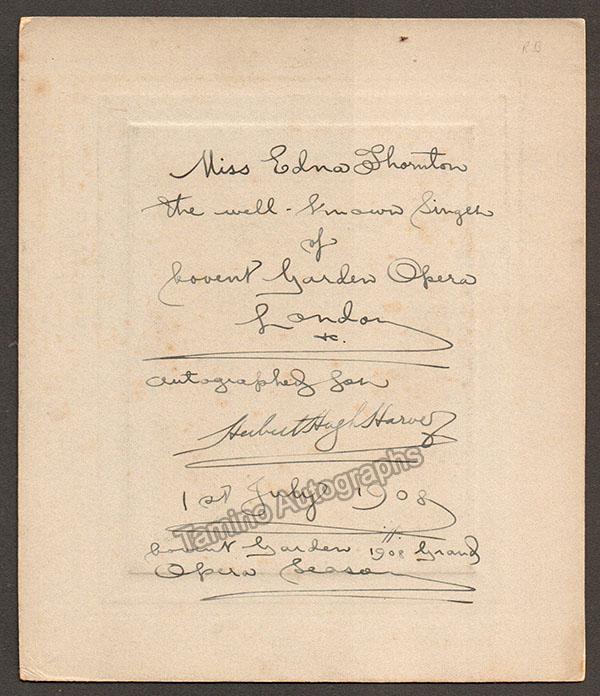 R B
Miss Edna Thornton
the well-known Singer
of
Covent Garden Opera
London
&c.
autographed for
Herbert Hugh Harvey
1st July 1908
Tamino Autographs
Covent Garden 1908 Grand
Opera Season